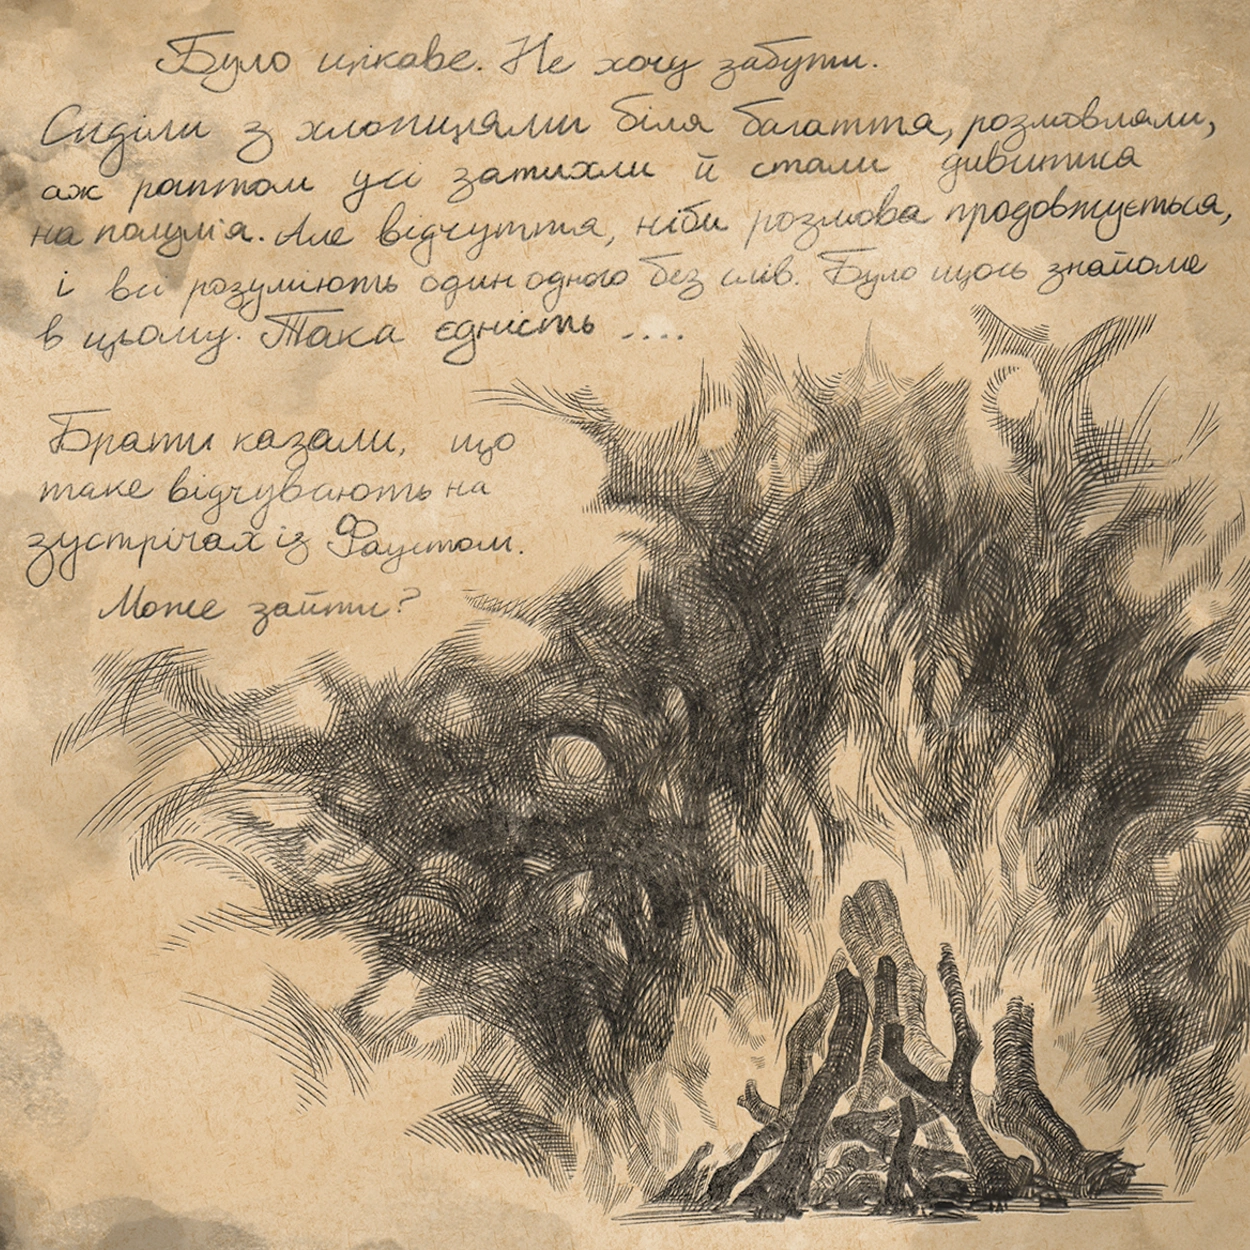 Було цікаве. Не хочу забути.
Сиділи з хлопцями біля багаття, розмовляли,
аж раптом усі затихли й стали дивитися
на полум'я. Але відчуття, ніби розмова продовжується,
і всі розуміють один одного без слів. Було щось знайоме
в цьому. Така єдність ....
Брати казали, що
таке відчувають на
зустрічах із Фаустом.
Може зайти?